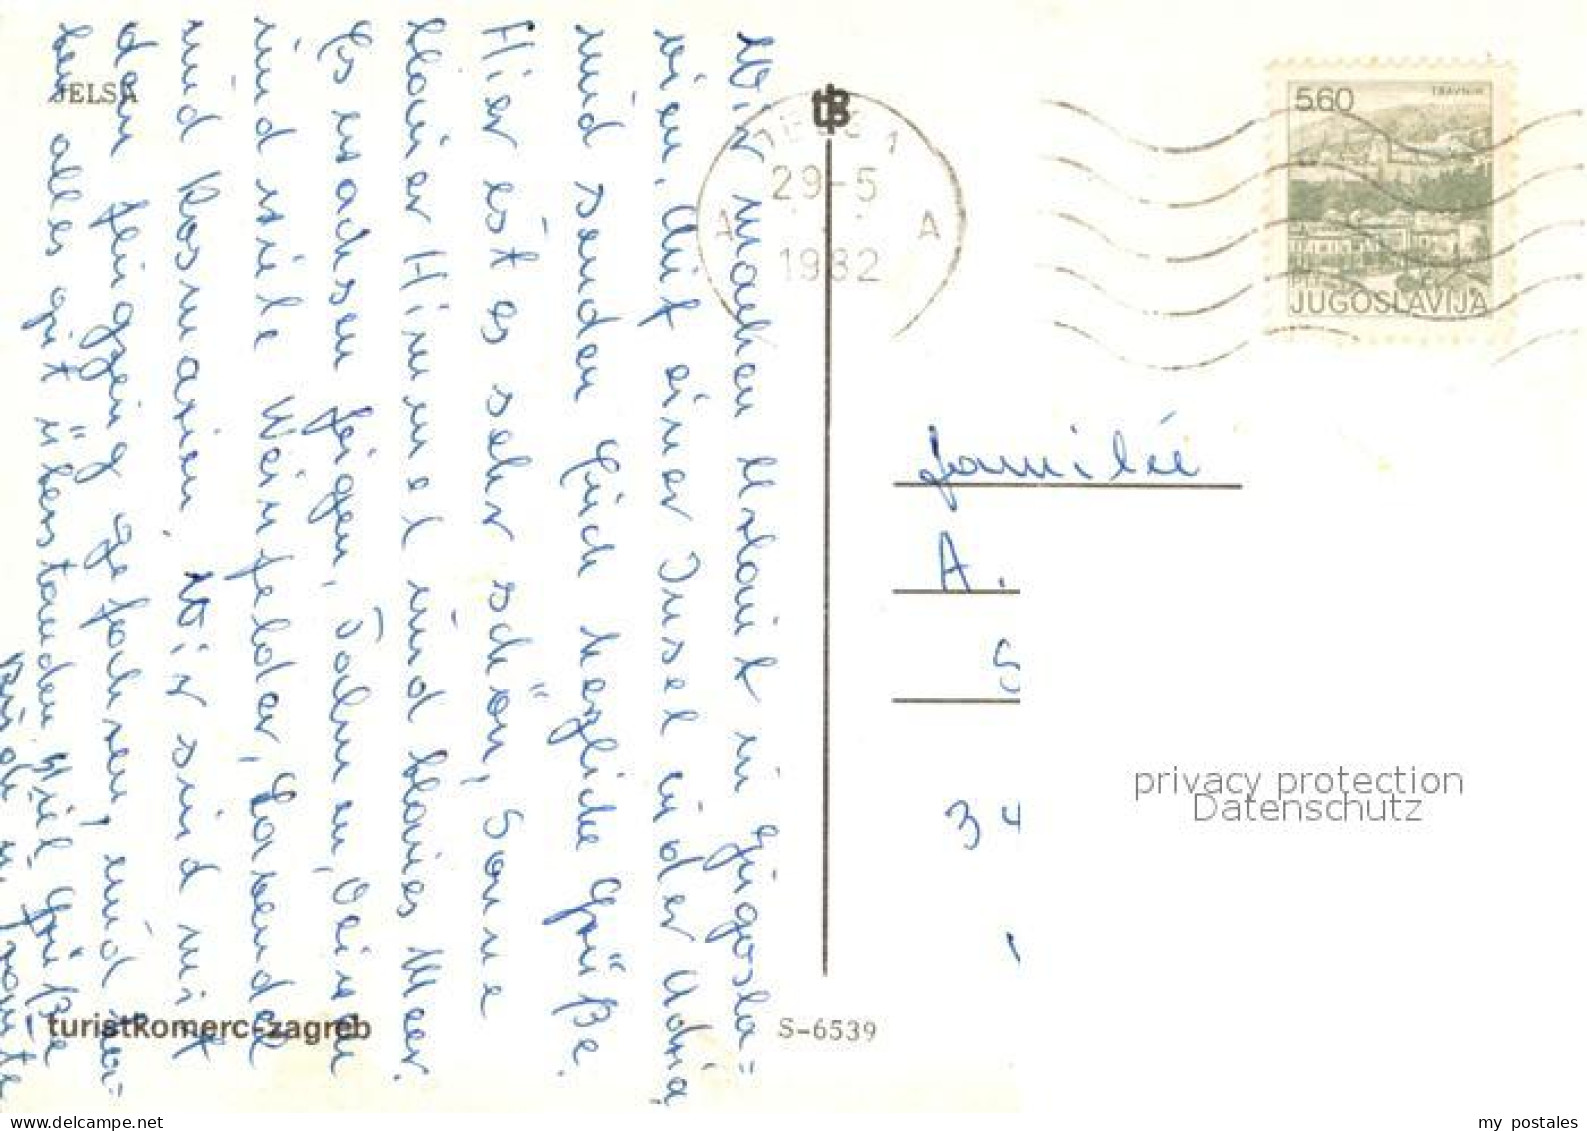 JELSA
Wir machen Urlaub in Jugosla=
vien. Auf einer Insel in der Adria
und senden Euch herzliche Grüße.
Hier ist es sehr schön, Sonne
blauer Himmel und blaues Meer.
Es wachsen Feigen, Palmen,
und viele Weinfelder, Lavendel
und Rosmarin. Wir sind mit
dem Flugzeug gefahren, und ha=
ben alles gut überstanden Viel Grüße
turistkomerc-zagreb
S-6539
tB
1
29-5
1982
A A
5.60
TRAVNIK
JUGOSLAVIJA
Familie
A.
S
34
privacy protection
Datenschutz
delcampe.net
my_postales